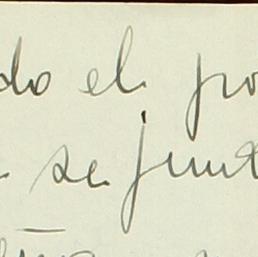 do el po
se junt